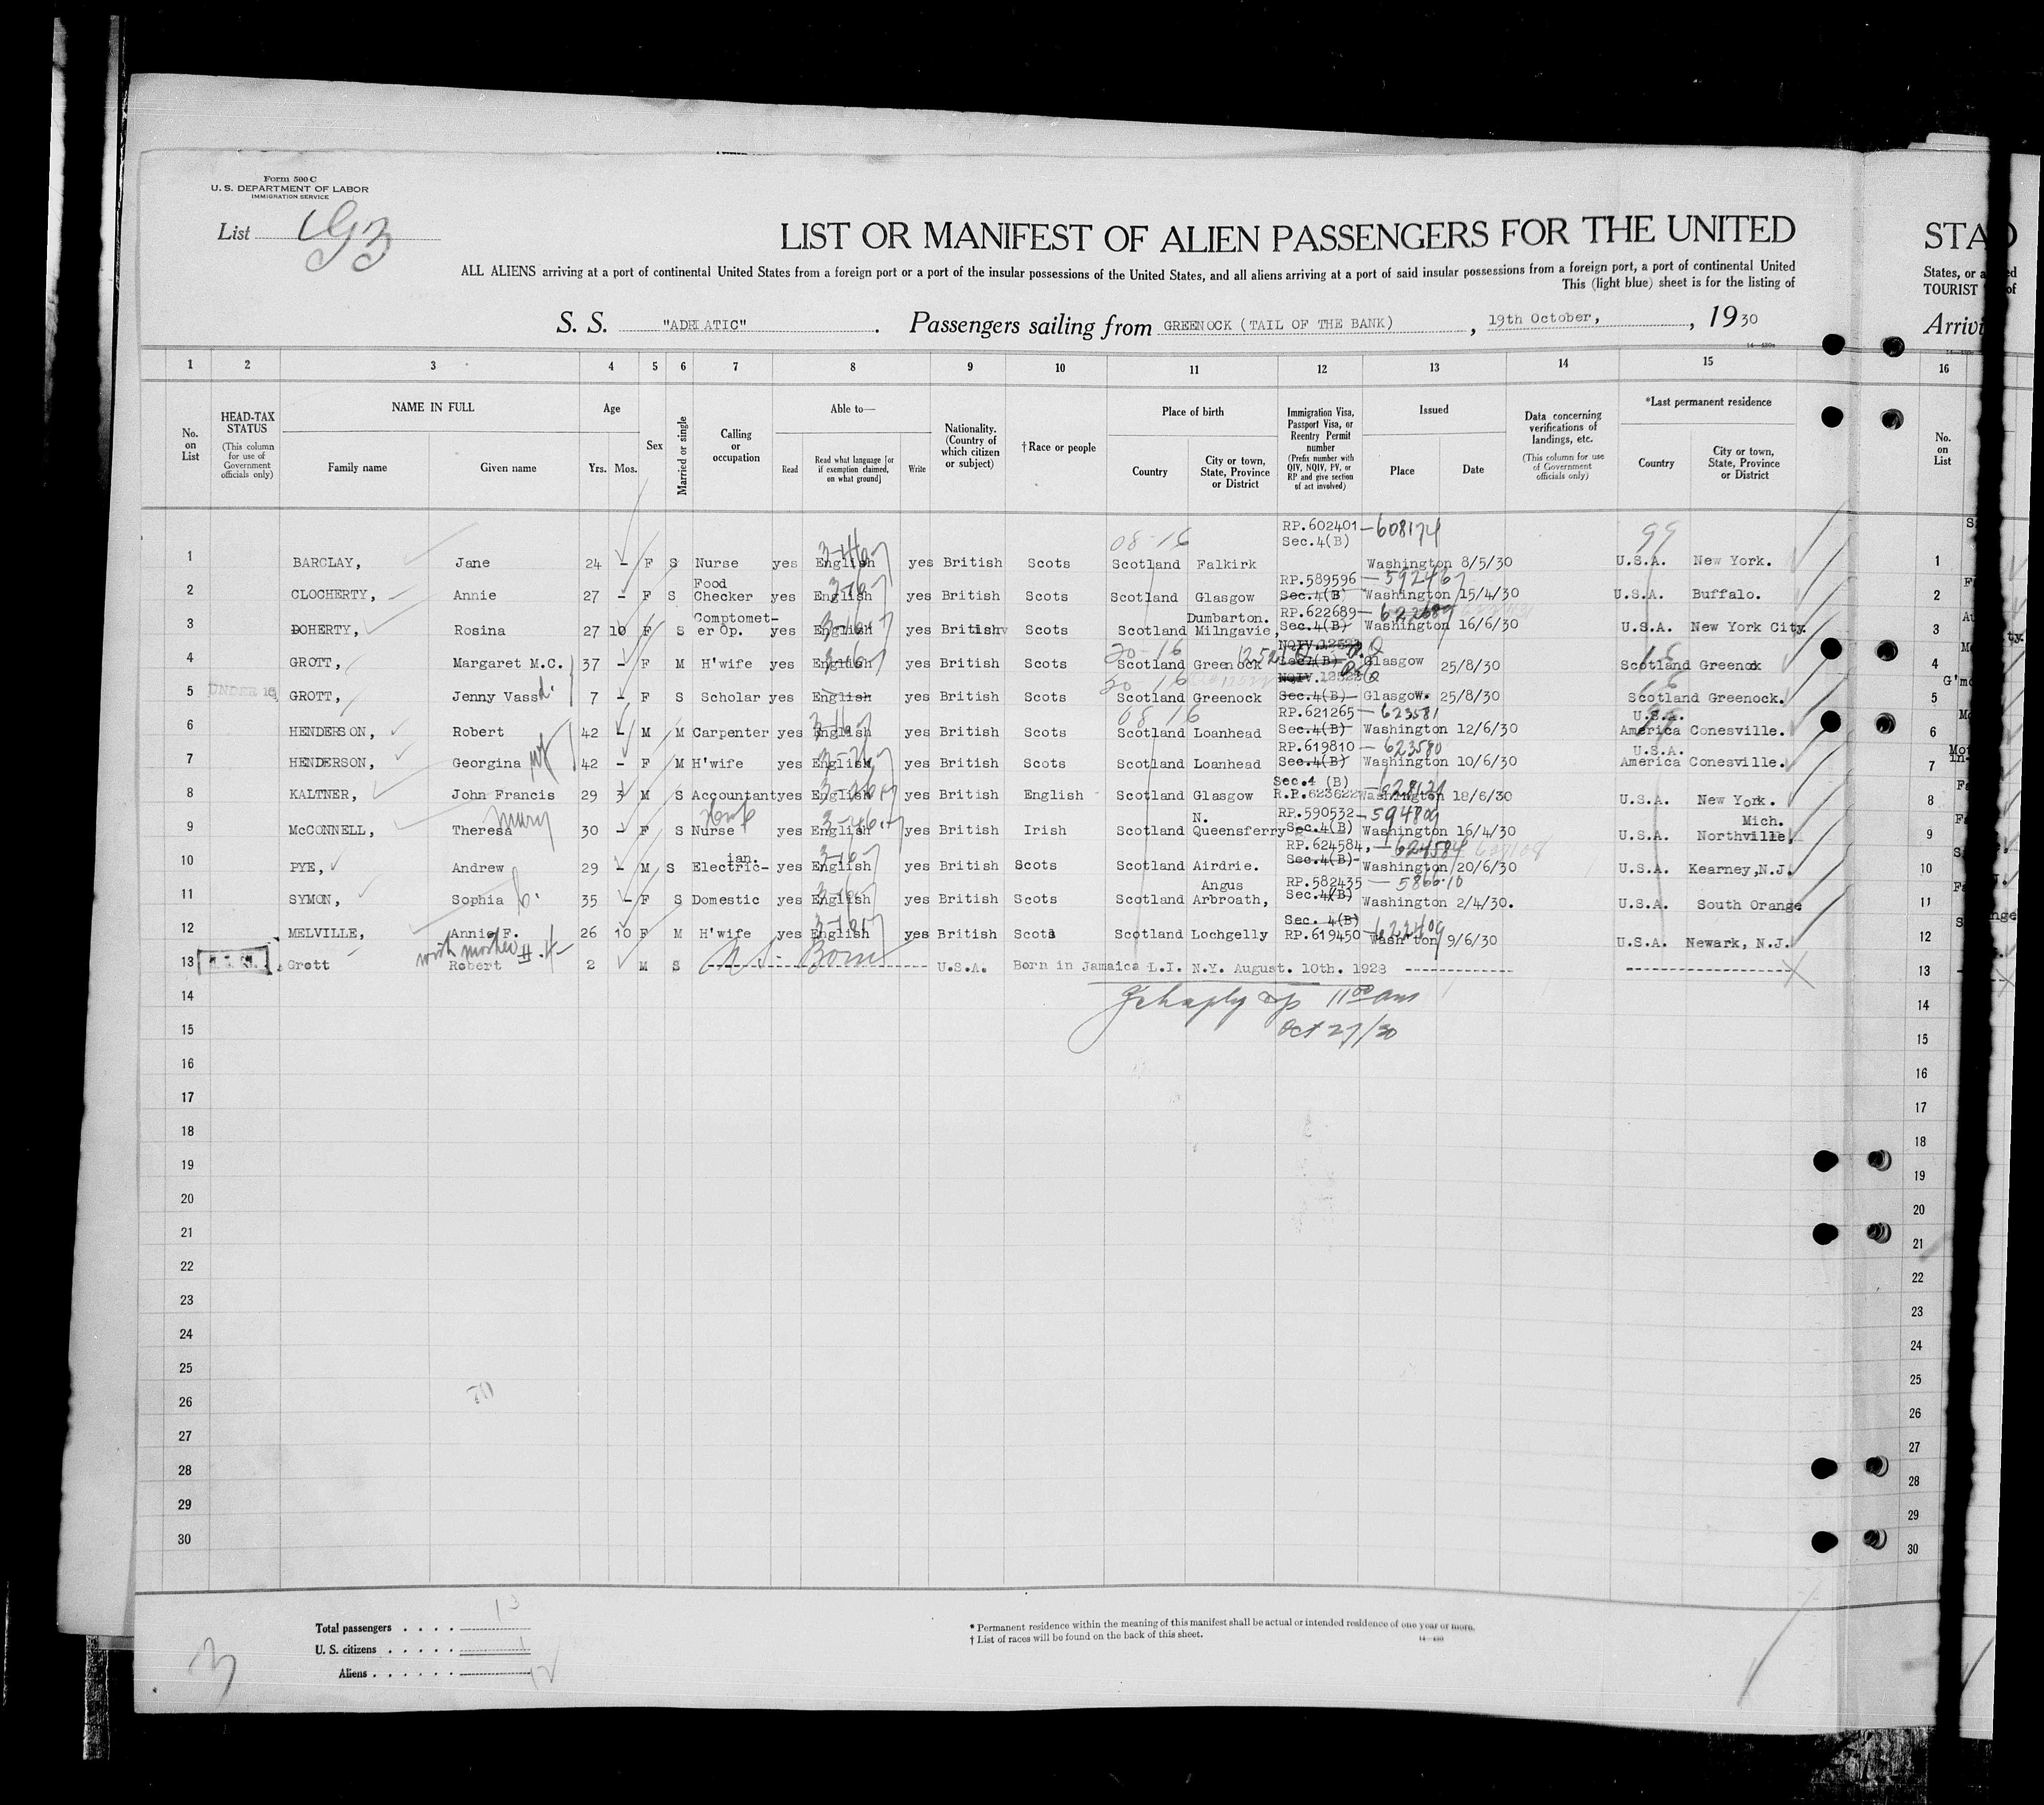 Form 500 C
U. S. DEPARTMENT OF LABOR
IMMIGRATION SERVICE
List
LIST OR MANIFEST OF ALIEN PASSENGERS FOR THE UNITED
STA
ALL ALIENS arriving at a port of continental United States from a foreign port or a port of the insular possessions of the United States, and all aliens arriving at a port of said insular possessions from a foreign port, a port of continental United
States, or a
This (light blue) sheet is for the listing of
TOURIST
S. S. "ADRIATIC" . Passengers sailing from GREENOCK (TAIL OF THE BANK) , 19th October, , 1930
Arrivi
1 2 3 4 5 6 7 8 9 10 11 12 13 14 15 16
No. on List
HEAD-TAX STATUS (This column for use of Government officials only)
NAME IN FULL Family name Given name
Age Yrs. Mos.
Sex
Married or single
Calling or occupation
Able to— Read Read what language [or if exemption claimed, on what ground] Write
Nationality. (Country of which citizen or subject)
† Race or people
Place of birth Country City or town, State, Province or District
Immigration Visa, Passport Visa, or Reentry Permit number (Prefix number with QIV, NQIV, PV, or RP and give section of act involved)
Issued Place Date
Data concerning verifications of landings, etc. (This column for use of Government officials only)
*Last permanent residence Country City or town, State, Province or District
No. on List
1 BARCLAY, Jane 24 - F S Nurse yes English yes British Scots Scotland Falkirk RP.602401 Sec.4(B) 608174 Washington 8/5/30 U.S.A. New York. 1
2 CLOCHERTY, Annie 27 - F S Food Checker yes English yes British Scots Scotland Glasgow RP.589596 Sec.4(B) 592467 Washington 15/4/30 U.S.A. Buffalo. 2
3 DOHERTY, Rosina 27 10 F S Comptometer Op. yes English yes British Scots Scotland Dumbarton. Milngavie, RP.622689 Sec.4(B) 622689 Washington 16/6/30 U.S.A. New York City. 3
4 GROTT, Margaret M.C. 37 - F M H'wife yes English yes British Scots Scotland Greenock Sec.4(B) Glasgow 25/8/30 Scotland Greenock 4
5 UNDER 16 GROTT, Jenny Vass 7 - F S Scholar yes English yes British Scots Scotland Greenock Sec.4(B) Glasgow. 25/8/30 Scotland Greenock. 5
6 HENDERSON, Robert 42 - M M Carpenter yes English yes British Scots Scotland Loanhead RP.621265 Sec.4(B) 623581 Washington 12/6/30 U.S.A. America Conesville. 6
7 HENDERSON, Georgina wf 42 - F M H'wife yes English yes British Scots Scotland Loanhead RP.619810 Sec.4(B) 623580 Washington 10/6/30 U.S.A. America Conesville. 7
8 KALTNER, John Francis 29 3 M S Accountant yes English yes British English Scotland Glasgow Sec.4 (B) R.P.623622 Washington 18/6/30 U.S.A. New York. 8
9 McCONNELL, Theresa Mary 30 - F S Nurse yes English yes British Irish Scotland N. Queensferry RP.590532 Sec.4(B) 594809 Washington 16/4/30 U.S.A. Mich. Northville, 9
10 PYE, Andrew 29 - M S Electrician. yes English yes British Scots Scotland Airdrie. RP.624584, Sec.4(B) 624584 Washington 20/6/30 U.S.A. Kearney, N.J. 10
11 SYMON, Sophia 35 - F S Domestic yes English yes British Scots Scotland Angus Arbroath, RP.582435 Sec.4(B) 586610 Washington 2/4/30. U.S.A. South Orange 11
12 MELVILLE, Annie F. 26 10 F M H'wife yes English yes British Scots Scotland Lochgelly Sec. 4(B) RP.619450 622409 Wash'ton 9/6/30 U.S.A. Newark, N.J. 12
13 Grott with mother Robert 2 M S Born U.S.A. Born in Jamaica L.I. N.Y. August. 10th. 1928 13
14 11 00 am 14
15 Oct 27/30 15
16 16
17 17
18 18
19 19
20 20
21 21
22 22
23 23
24 24
25 25
26 26
27 27
28 28
29 29
30 30
Total passengers 13
U. S. citizens 1
Aliens 12
* Permanent residence within the meaning of this manifest shall be actual or intended residence of one year or more.
† List of races will be found on the back of this sheet.